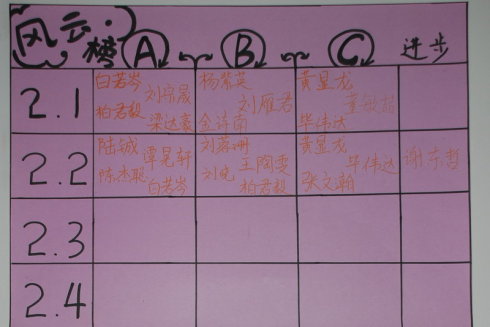 风云榜 A B C 进步
2.1
白若岑 刘宗晟 柏君毅 梁达豪
杨紫英 刘雁君 金诗雨
黄显龙 董敏超 毕伟达
2.2
陆铖 谭晃轩 陈杰聪 白若岑
刘蓉珊 刘 王陶雯 柏君毅
黄显龙 毕伟达 张文翰
谢东哲
2.3
2.4